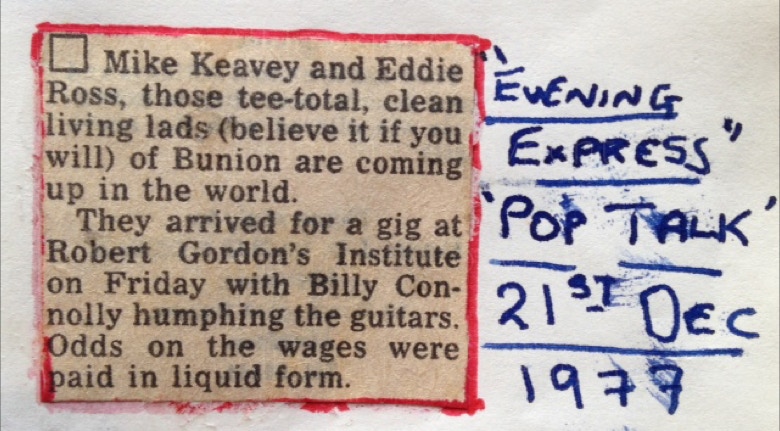 Mike Keavey and Eddie
Ross, those tee-total, clean
living lads (believe it if you
will) of Bunion are coming
up in the world.
They arrived for a gig at
Robert Gordon's Institute
on Friday with Billy Con-
nolly humphing the guitars.
Odds on the wages were
paid in liquid form.
"EVENING
EXPRESS"
'POP TALK'
21ST DEC
1977